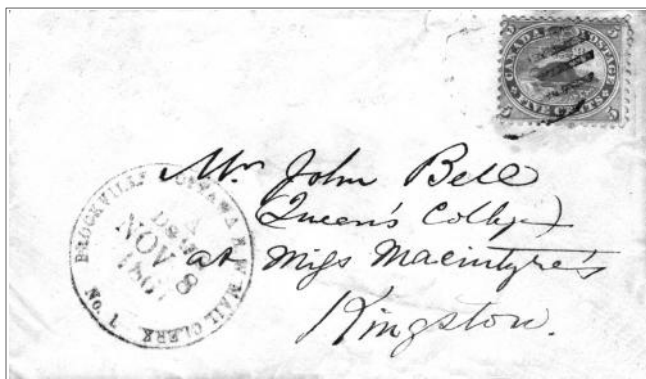 CANADA POSTAGE
5 5
FIVE CENTS
5 5
Mr John Bell
(Queen's College)
at Miss Macintyre's
Kingston.
BROCKVILLE OTTAWA R.W MAIL CLERK NO. 1
NOV 8